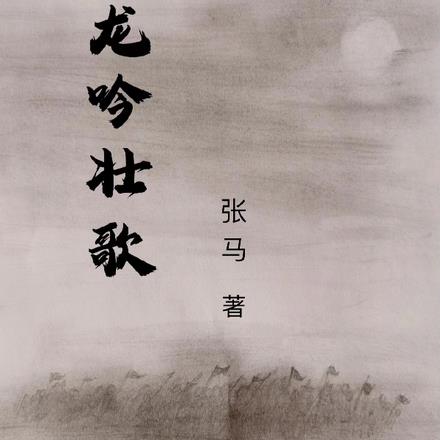 龙吟壮歌
张马 著